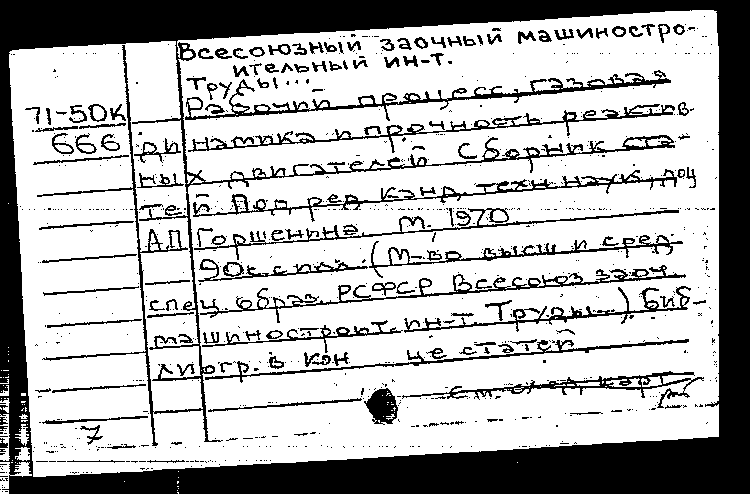 Всесоюзный заочный машиностро-
ительный ин-т.
Труды...
71-50к Рабочий процесс, газовая
666 динамика и прочность реактив-
ных двигателей Сборник ста-
тей. Под ред. канд. техн. наук, доц
А.П. Горшенина. М., 1970.
90с. с илл. (М-во высш и сред
спец. образ. РСФСР Всесоюз. заоч.
машиностроит. ин-т. Труды...). Биб-
лиогр. в кон це статей.
См. след. карт
7